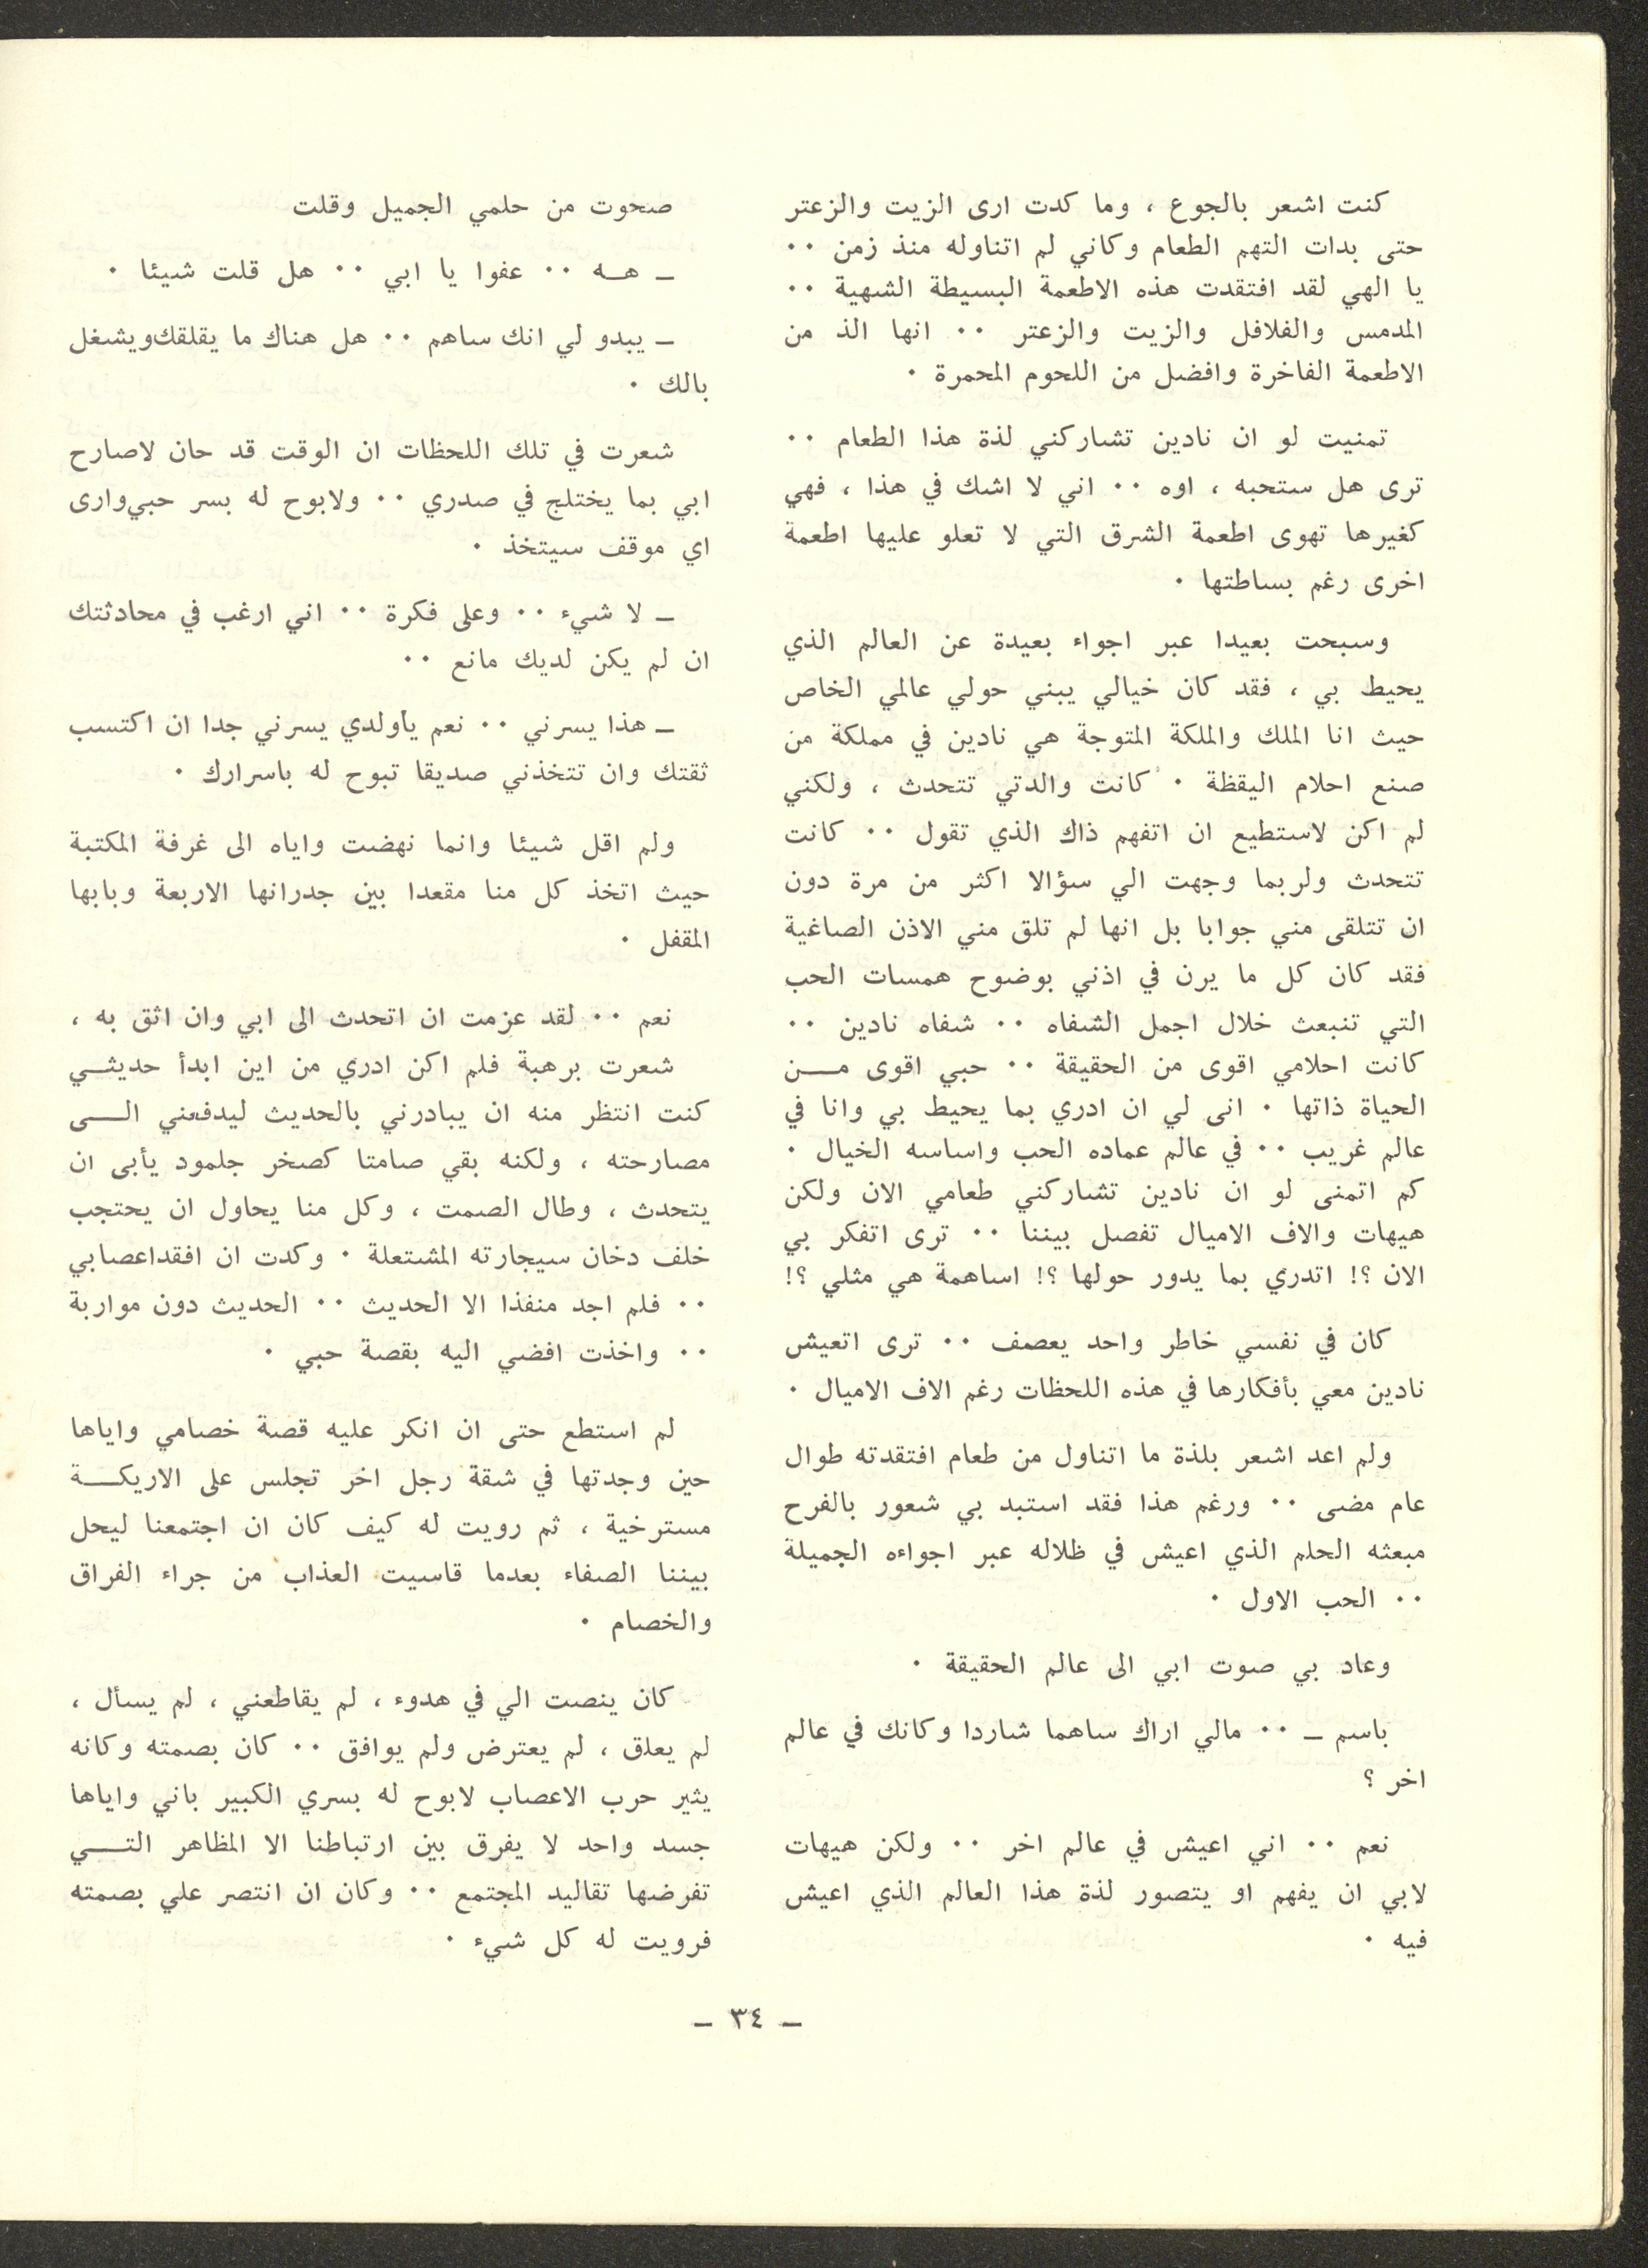 كنت اشعر بالجوع ، وما كدت ارى الزيت والزعتر
حتى بدات التهم الطعام وكاني لم اتناوله منذ زمن ٠٠
يا الهي لقد افتقدت هذه الاطعمة البسيطة الشهية ٠٠
المدمس والفلافل والزيت والزعتر ٠٠ انها الذ من
الاطعمة الفاخرة وافضل من اللحوم المحمرة ٠
تمنيت لو ان نادين تشاركني لذة هذا الطعام ٠٠
ترى هل ستحبه ، اوه ٠٠ اني لا اشك في هذا ، فهي
كغيرها تهوى اطعمة الشرق التي لا تعلو عليها اطعمة
اخرى رغم بساطتها ٠
وسبحت بعيدا عبر اجواء بعيدة عن العالم الذي
يحيط بي ، فقد كان خيالي يبني حولي عالمي الخاص
حيث انا الملك والملكة المتوجة هي نادين في مملكة من
صنع احلام اليقظة ٠ كانت والدتي تتحدث ، ولكني
لم اكن لاستطيع ان اتفهم ذاك الذي تقول ٠٠ كانت
تتحدث ولربما وجهت الي سؤالا اكثر من مرة دون
ان تتلقى مني جوابا بل انها لم تلق مني الاذن الصاغية
فقد كان كل ما يرن في اذني بوضوح همسات الحب
التي تنبعث خلال اجمل الشفاه ٠٠ شفاه نادين ٠٠
كانت احلامي اقوى من الحقيقة ٠٠ حبي اقوى مـــن
الحياة ذاتها ٠ انى لي ان ادري بما يحيط بي وانا في
عالم غريب ٠٠ في عالم عماده الحب واساسه الخيال ٠
كم اتمنى لو ان نادين تشاركني طعامي الان ولكن
هيهات والاف الاميال تفصل بيننا ٠٠ ترى اتفكر بي
الان ؟! اتدري بما يدور حولها ؟! اساهمة هي مثلي ؟!
كان في نفسي خاطر واحد يعصف ٠٠ ترى اتعيش
نادين معي بأفكارها في هذه اللحظات رغم الاف الاميال ٠
ولم اعد اشعر بلذة ما اتناول من طعام افتقدته طوال
عام مضى ٠٠ ورغم هذا فقد استبد بي شعور بالفرح
مبعثه الحلم الذي اعيش في ظلاله عبر اجواءه الجميلة
٠٠ الحب الاول ٠
وعاد بي صوت ابي الى عالم الحقيقة ٠
باسم ـ ٠٠ مالي اراك ساهما شاردا وكانك في عالم
اخر ؟
نعم ٠٠ اني اعيش في عالم اخر ٠٠ ولكن هيهات
لابي ان يفهم او يتصور لذة هذا العالم الذي اعيش
فيه ٠
صحوت من حلمي الجميل وقلت
ـ هــه ٠٠ عفوا يا ابي ٠٠ هل قلت شيئا ٠
ـ يبدو لي انك ساهم ٠٠ هل هناك ما يقلقك ويشغل
بالك ٠
شعرت في تلك اللحظات ان الوقت قد حان لاصارح
ابي بما يختلج في صدري ٠٠ ولابوح له بسر حبي وارى
اي موقف سيتخذ ٠
ـ لا شيء ٠٠ وعلى فكرة ٠٠ اني ارغب في محادثتك
ان لم يكن لديك مانع ٠٠
ـ هذا يسرني ٠٠ نعم ياولدي يسرني جدا ان اكتسب
ثقتك وان تتخذني صديقا تبوح له باسرارك ٠
ولم اقل شيئا وانما نهضت واياه الى غرفة المكتبة
حيث اتخذ كل منا مقعدا بين جدرانها الاربعة وبابها
المقفل ٠
نعم ٠٠ لقد عزمت ان اتحدث الى ابي وان اثق به ،
شعرت برهبة فلم اكن ادري من اين ابدأ حديثــي
كنت انتظر منه ان يبادرني بالحديث ليدفعني الـــى
مصارحته ، ولكنه بقي صامتا كصخر جلمود يأبى ان
يتحدث ، وطال الصمت ، وكل منا يحاول ان يحتجب
خلف دخان سيجارته المشتعلة ٠ وكدت ان افقداعصابي
٠٠ فلم اجد منفذا الا الحديث ٠٠ الحديث دون مواربة
٠٠ واخذت افضي اليه بقصة حبي ٠
لم استطع حتى ان انكر عليه قصة خصامي واياها
حين وجدتها في شقة رجل اخر تجلس على الاريكـــة
مسترخية ، ثم رويت له كيف كان ان اجتمعنا ليحل
بيننا الصفاء بعدما قاسيت العذاب من جراء الفراق
والخصام ٠
كان ينصت الي في هدوء ، لم يقاطعني ، لم يسأل ،
لم يعلق ، لم يعترض ولم يوافق ٠٠ كان بصمته وكانه
يثير حرب الاعصاب لابوح له بسري الكبير باني واياها
جسد واحد لا يفرق بين ارتباطنا الا المظاهر التـــي
تفرضها تقاليد المجتمع ٠٠ وكان ان انتصر علي بصمته
فرويت له كل شيء ٠
ـ ٣٤ ـ